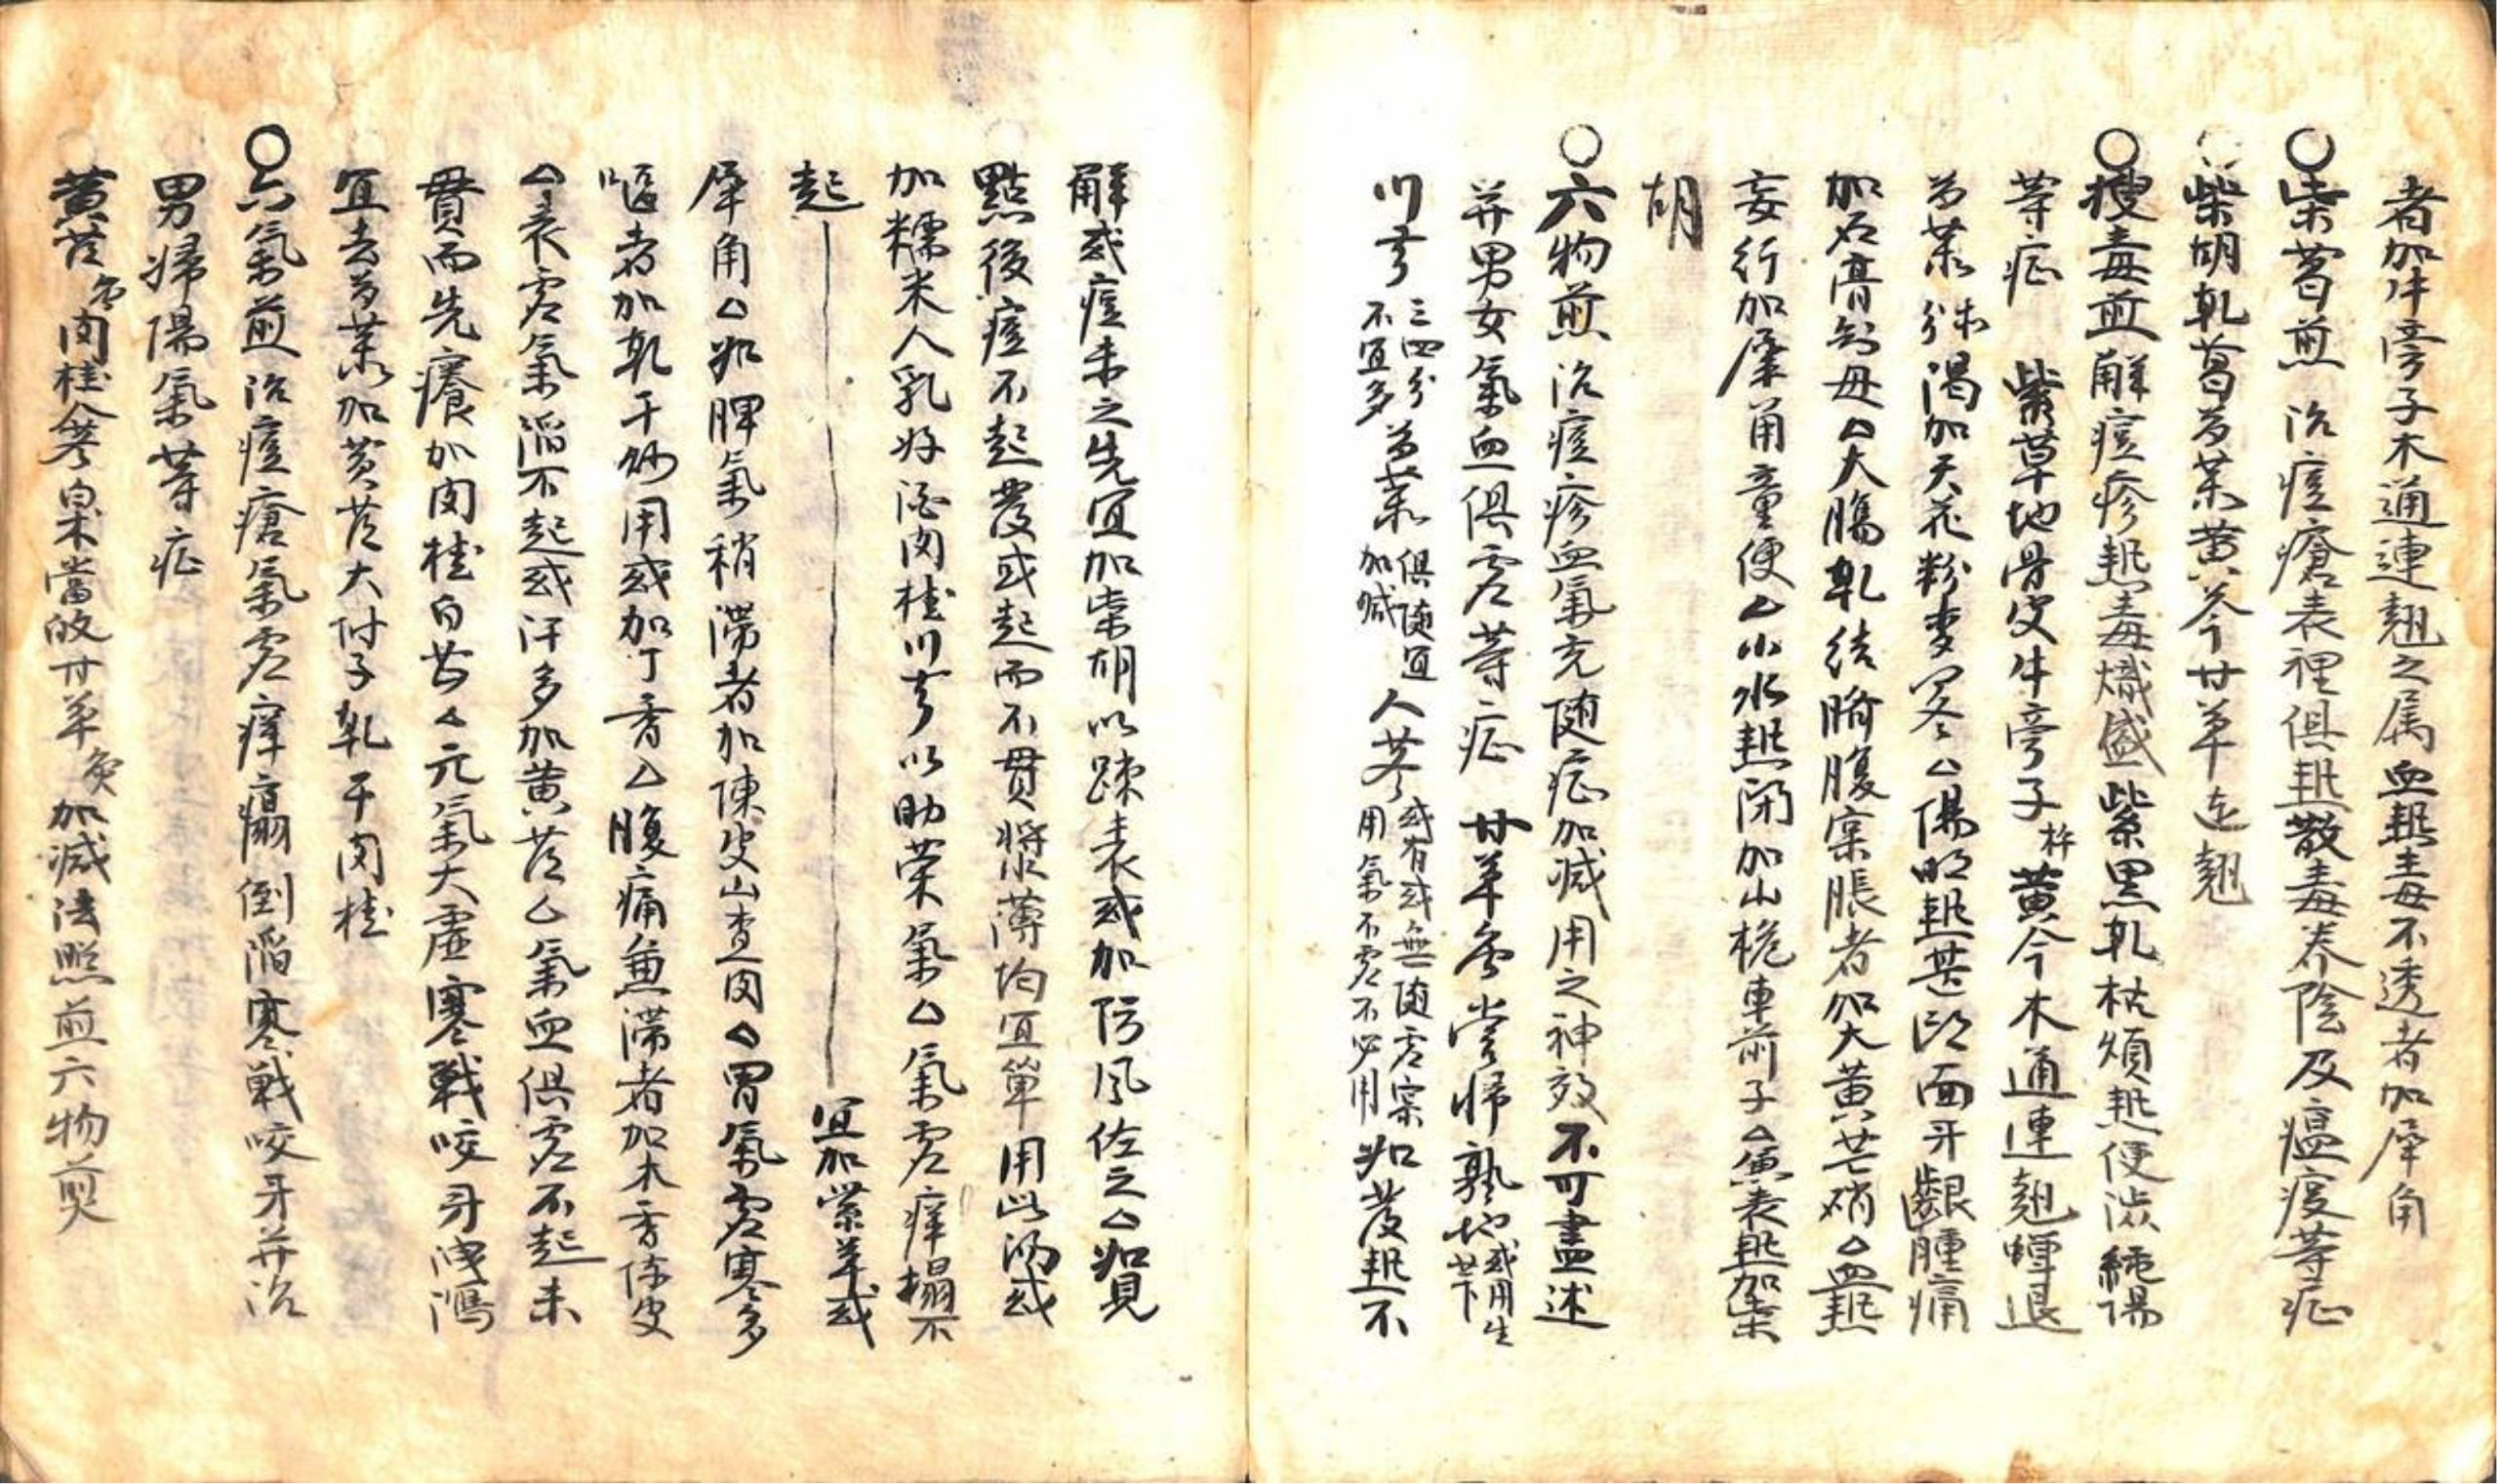 者加牛旁子木通連翹之属血熱毒不透者加犀角
○柴葛煎 治痘瘡表裡俱熱散毒养陰及瘟疫等症
○柴胡乾葛芍薬黄芩甘草连翹
○搜毒煎解痘疹熱毒熾盛紫黑乾枯煩熱便澁純陽
等症 紫草地骨皮牛旁子杵黄今木通連翹蟬退
芍薬 渴加天花粉麦冬△陽明熱甚頭面牙齦腫痛
加石膏知母△大腸乾結臍腹寔脹者加大黄芒硝△血熱
妄行加犀角童便△小水熱闭加山梔車前子△兼表熱加柴
胡
○六物煎 治痘疹血氣充随症加减用之神效不可盡述
并男女氣血俱虚等症 甘草當帰熟地或用生
川芎三四分不宜多芍薬俱随宜加减 人参或有或無随虚寔用氣不虚不必用如發熱不
解或痘未之先宜加柴胡以踈表或加防風佐之△如見
點後痘不起發或起而不貫將漿薄均宜單用此湯或
加糯米人乳好酒肉桂川芎以助荣氣△氣虚痒榻不
起 宜加紫草或
犀角△如脾氣稍滞者加陳皮山查肉△胃氣虚寒多
嘔者加乾干炒用或加丁香△腹痛兼滞者加木香陈皮
△表虚氣陷不起或汗多加黄芪△氣血俱虚不起未
貫而先癢加肉桂白芷△元氣大虛寒戰咬牙洩瀉
宜去芍薬加黄芪大付子乾干肉桂
○六氣煎治痘瘡氣虚痒瘍倒陷寒戦咬牙并治
男帰陽氣等症
黄芪肉桂參白术當皈甘草灸加减法照前六物煎